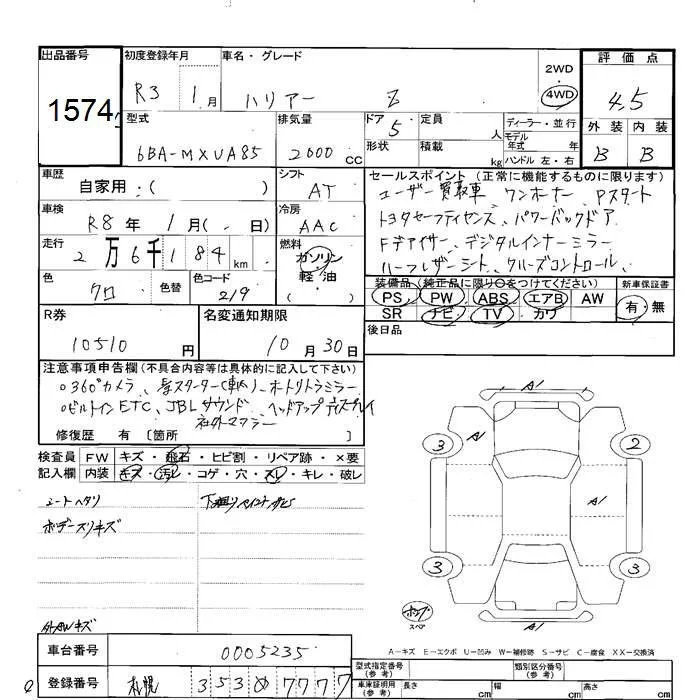 出品番号
1574
初度登録年月
R3 1月
車名・グレード
ハリアー Z
2WD
4WD
評価点
4.5
外装 内装
B B
型式
6BA-MXUA85
排気量
2000 CC
ドア 5
形状
定員 人
積載 kg
ディーラー・並行
モデル年式 年式
ハンドル 左・右
車歴
自家用:( )
シフト
AT
車検
R8年 1月( . 日)
冷房
AAC
走行
2万6千184km
燃料
ガソリン
軽・油
( )
色
クロ
色替
色コード
219
セールスポイント(正常に機能するものに限ります)
ユーザー買取車、ワンオーナー、Pスタート
トヨタセーフティセンス、パワーバックドア
Fデアイサー、デジタルインナーミラー
ハーフレザーシート、クルーズコントロール、
装備品(純正品に限り○をつけてください)
PS PW ABS エアB AW
SR ナビ TV カワ
新車保証書
有・無
後日品
R券
10510円
名変通知期限
10月30日
注意事項申告欄(不具合内容等は具体的に記入して下さい)
○360°カメラ、 スターター(車内)、オートリトラミラー
○ビルトインETC、JBLサウンド、ヘッドアップディスプレイ
社外マフラー
修復歴 有 〔箇所 〕
検査員記入欄
FW キズ・飛石・ヒビ割・リペア跡・×要
内装 キズ・汚レ・コゲ・穴・スレ・キレ・破レ
シートヘタリ
ボデースリキズ
下廻りペイント
外AWキズ
A1
3 A1 2
A1
3 3
ホンプ
スペア
A1
A=キズ E=エクボ U=凹み W=補修跡 S=サビ C=腐食 XX=交換済
車台番号
0005235
登録番号
札幌 353 め 7777
型式指定番号(参考)
類別区分番号(参考)
車庫証明用(参考)
長さ cm
幅 cm
高さ cm